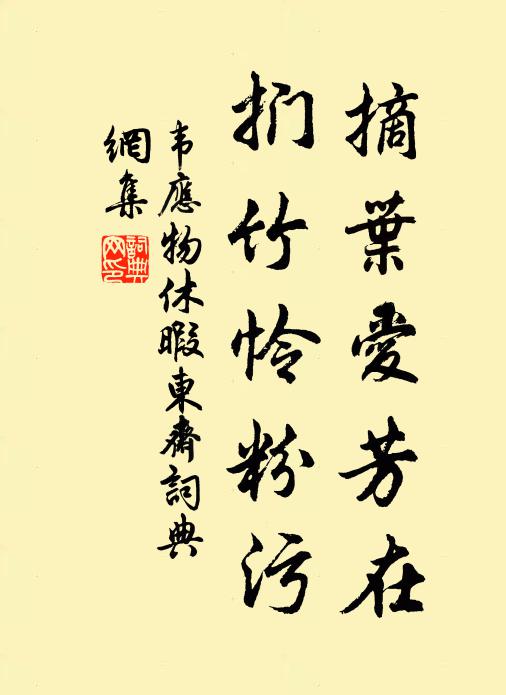 摘葉愛芳在
捫竹怜粉污
韦應物休暇東齋詞典
網集
詞典
网印